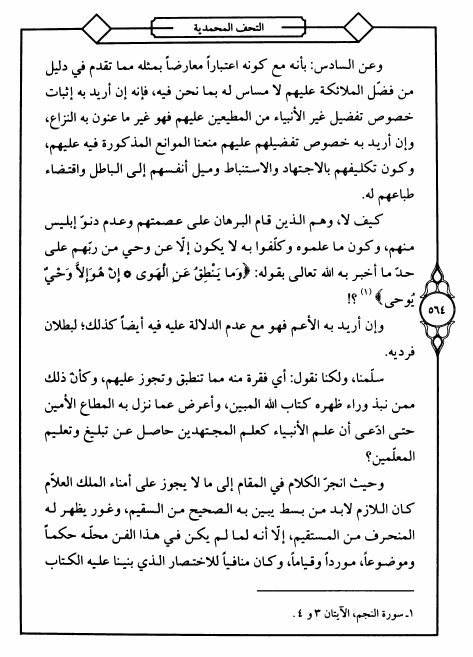 التحف المحمدية
وعن السادس: بأنه مع كونه اعتباراً معارضاً بمثله مما تقدم في دليل
من فضّل الملائكة عليهم لا مساس له بما نحن فيه، فإنه إن أريد به إثبات
خصوص تفضيل غير الأنبياء من المطيعين عليهم فهو غير ما عنون به النزاع،
وإن أريد به خصوص تفضيلهم عليهم منعنا الموانع المذكورة فيه عليهم،
وكون تكليفهم بالاجتهاد والاستنباط وميل أنفسهم إلى الباطل واقتضاء
طباعهم له.
كيف لا، وهم الذين قام البرهان على عصمتهم وعدم دنوّ إبليس
منهم، وكون ما علموه وكلّفوا به لا يكون إلّا عن وحي من ربّهم على
حدّ ما أخبر به الله تعالى بقوله: ﴿وَمَا يَنْطِقُ عَنِ الْهَوى * إِنْ هُوَ إِلاَّ وَحْيٌ
يُوحى﴾ (١) ؟!
٥٦٤
وإن أريد به الأعم فهو مع عدم الدلالة عليه فيه أيضاً كذلك؛ لبطلان
فرديه.
سلّمنا، ولكنا نقول: أي فقرة منه مما تنطبق وتجوز عليهم، وكأن ذلك
ممن نبذ وراء ظهره كتاب الله المبين، وأعرض عما نزل به المطاع الأمين
حتى ادّعى أن علم الأنبياء كعلم المجتهدين حاصل عن تبليغ وتعليم
المعلّمين؟
وحيث انجرّ الكلام في المقام إلى ما لا يجوز على أمناء الملك العلاّم
كان اللازم لابد من بسط يبين به الصحيح من السقيم، وغور يظهر له
المنحرف من المستقيم، إلّا أنه لما لم يكن في هذا الفن محلّه حكماً
وموضوعاً، مورداً وقياماً، وكان منافياً للاختصار الذي بنينا عليه الكتاب
١ـ سورة النجم، الآيتان ٣ و ٤ .